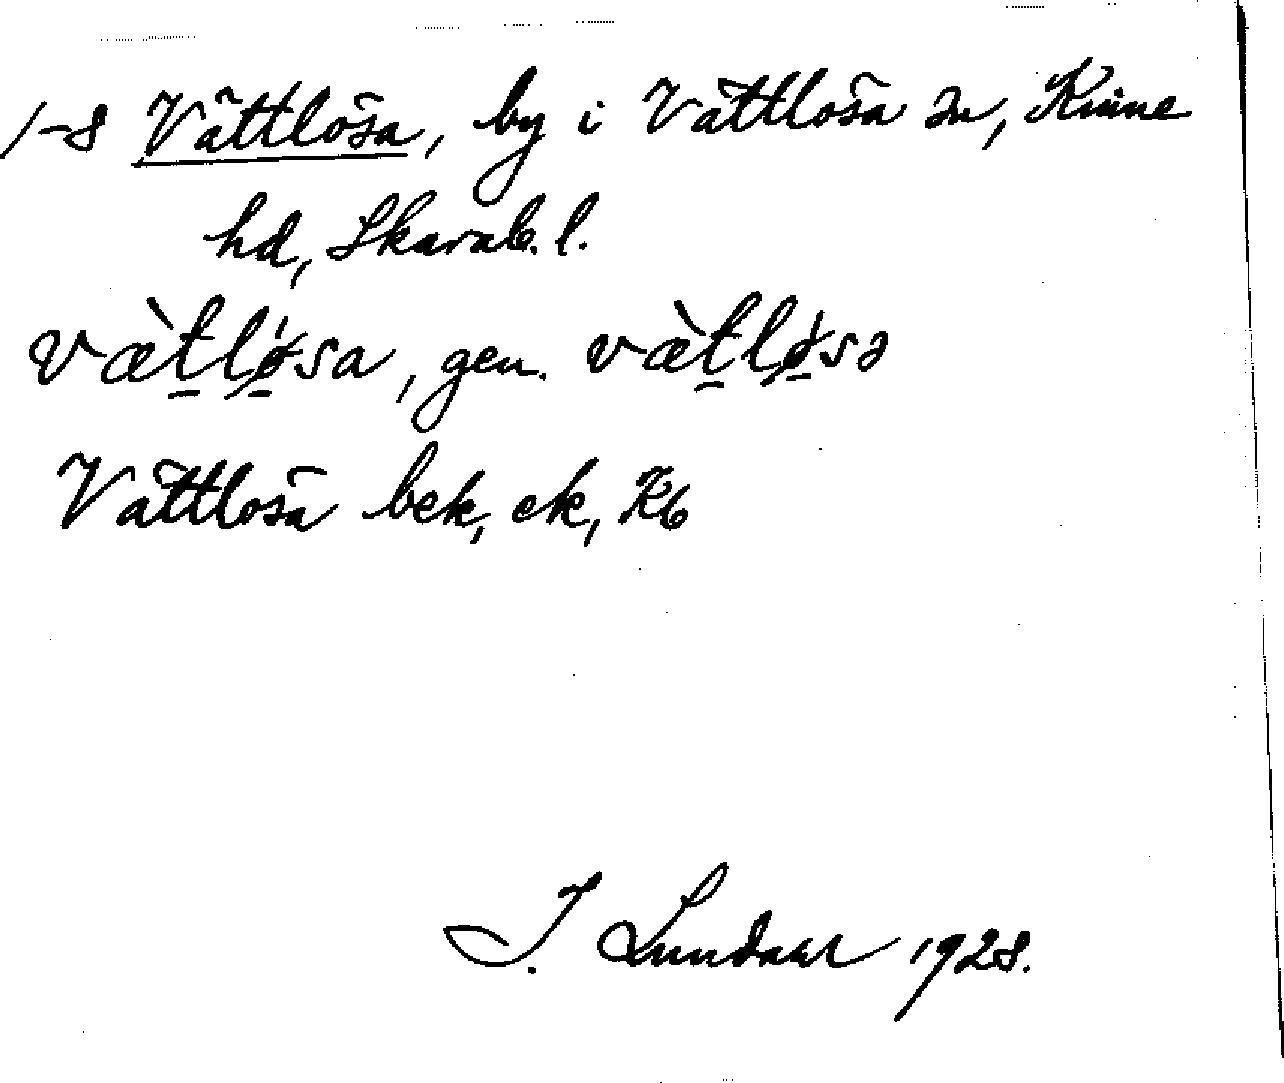 1-8 Vättlösa, by i Vättlösa sn, Kinne
hd, Skarab. l.
væ̀tlǿsa, gen. væ̀tlǿsə
Vättlösa bek, ek, Kb
I. Lundahl 1928.